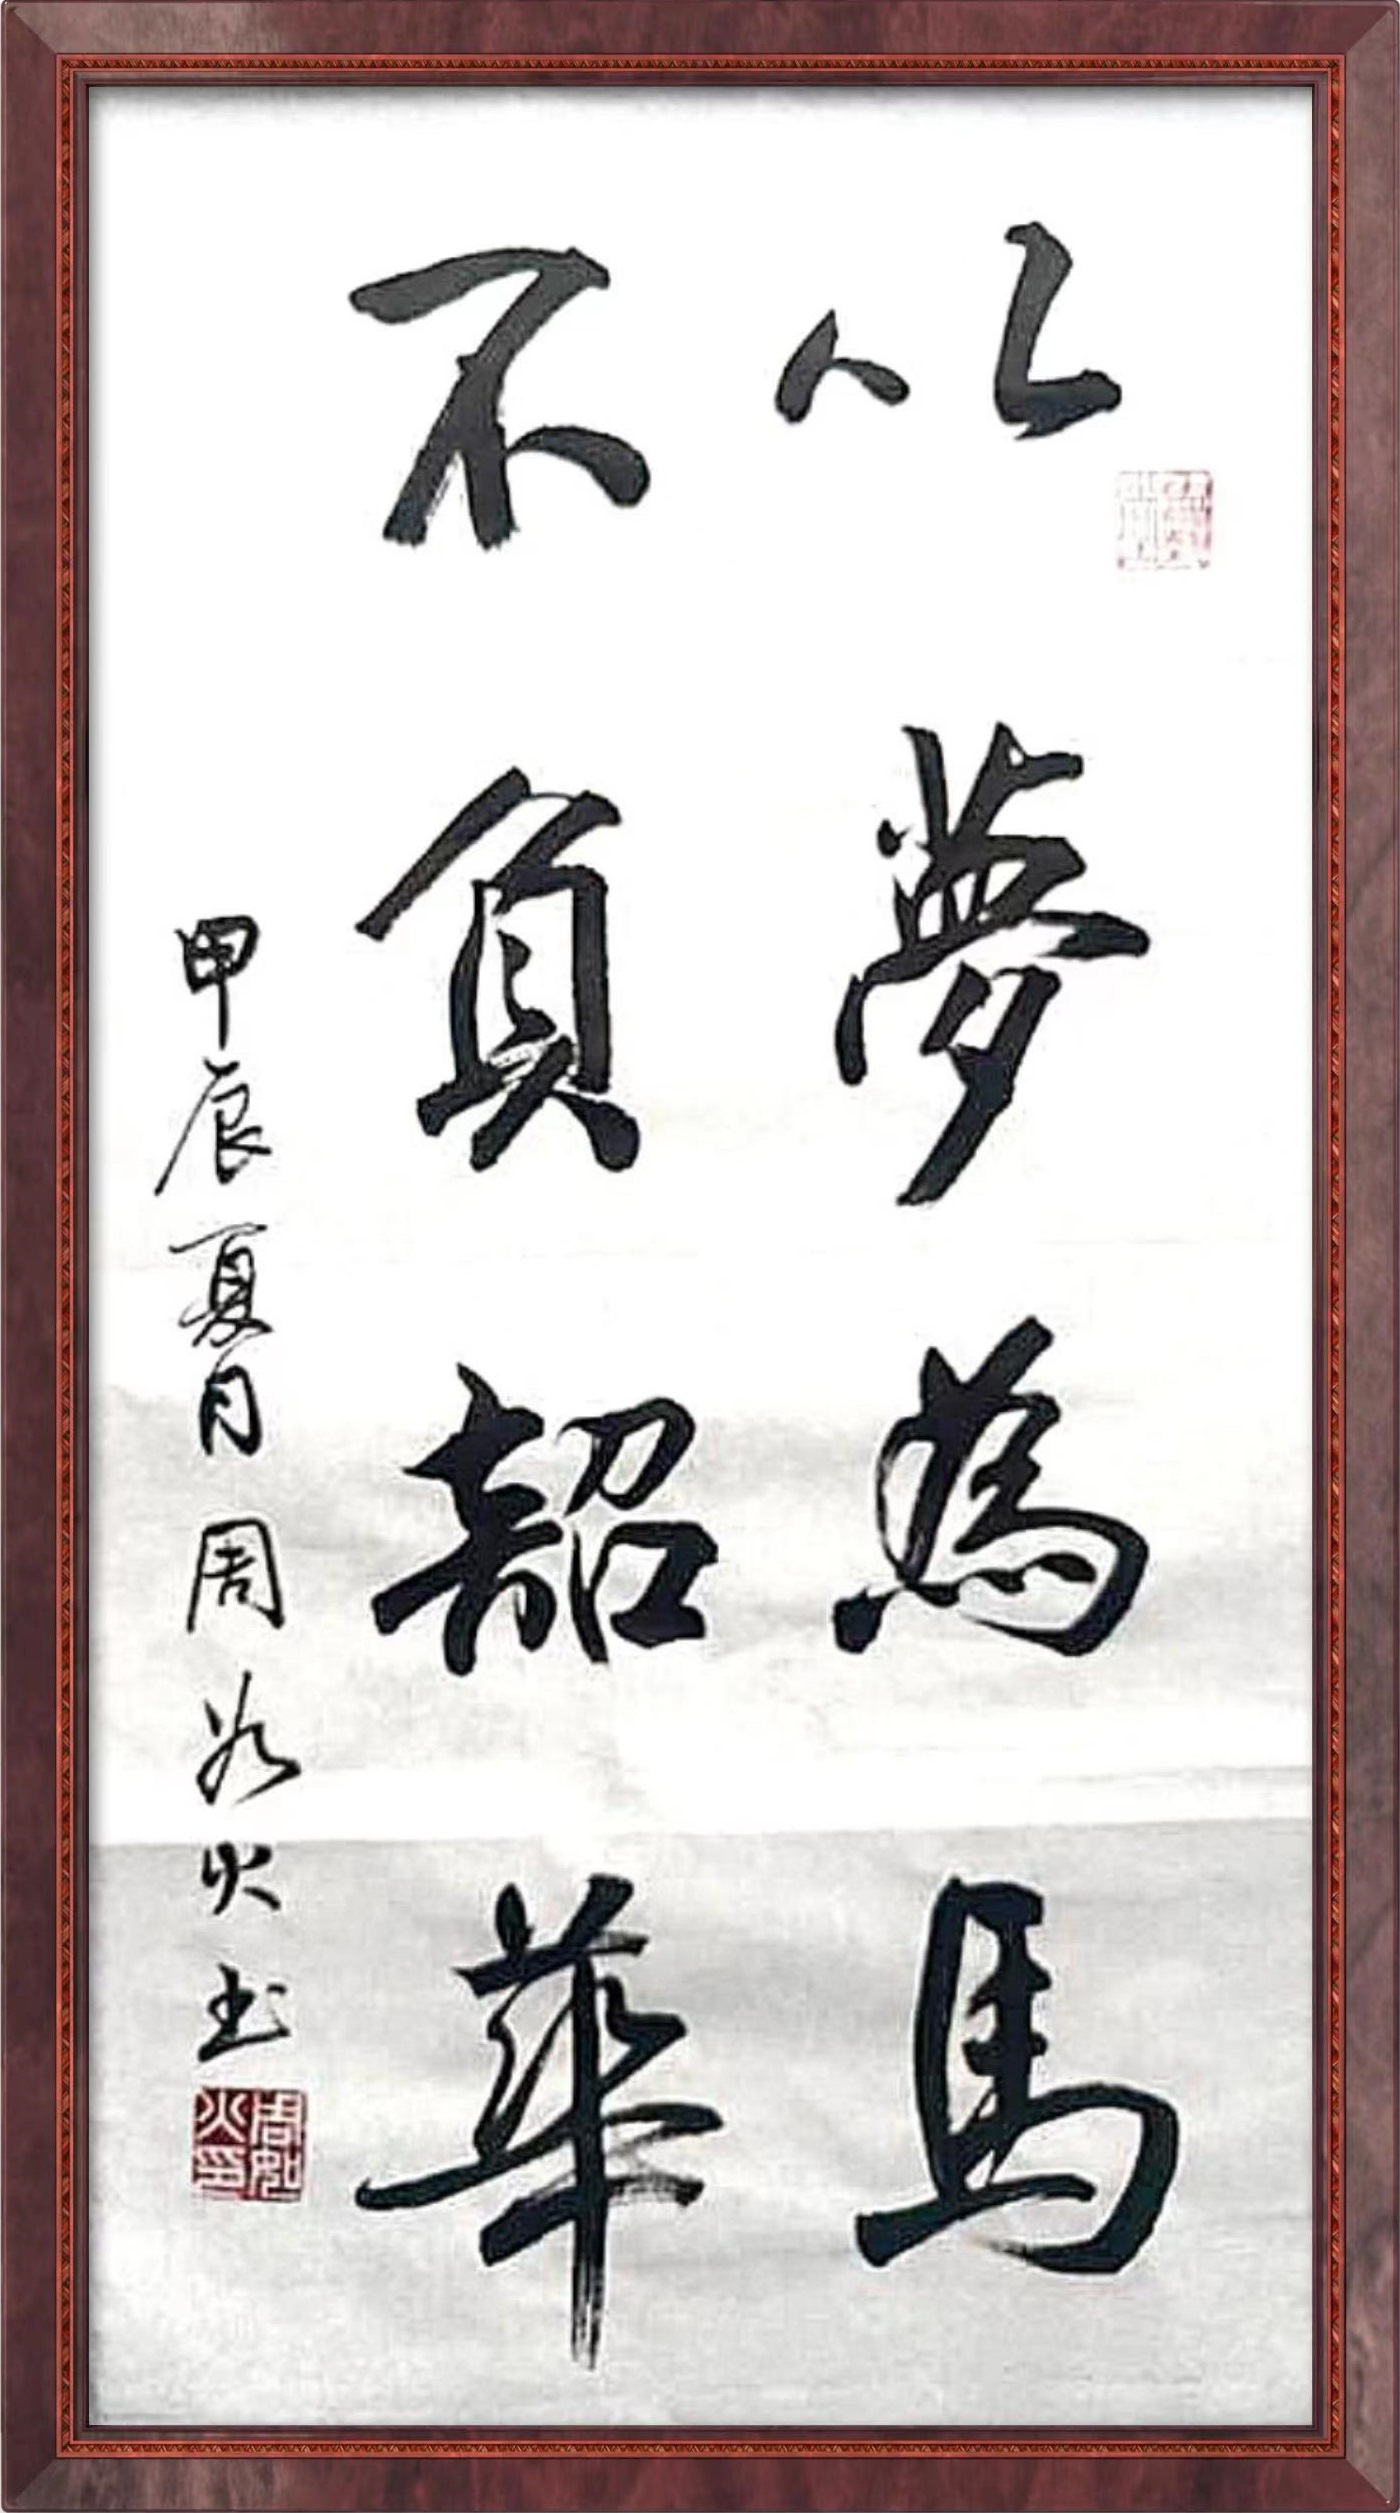 以夢為馬
不負韶華
甲辰夏月周如火书
周如火印